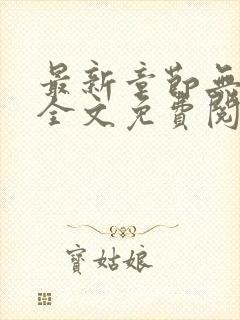 最新章節無
全文免費閱
寶姑娘